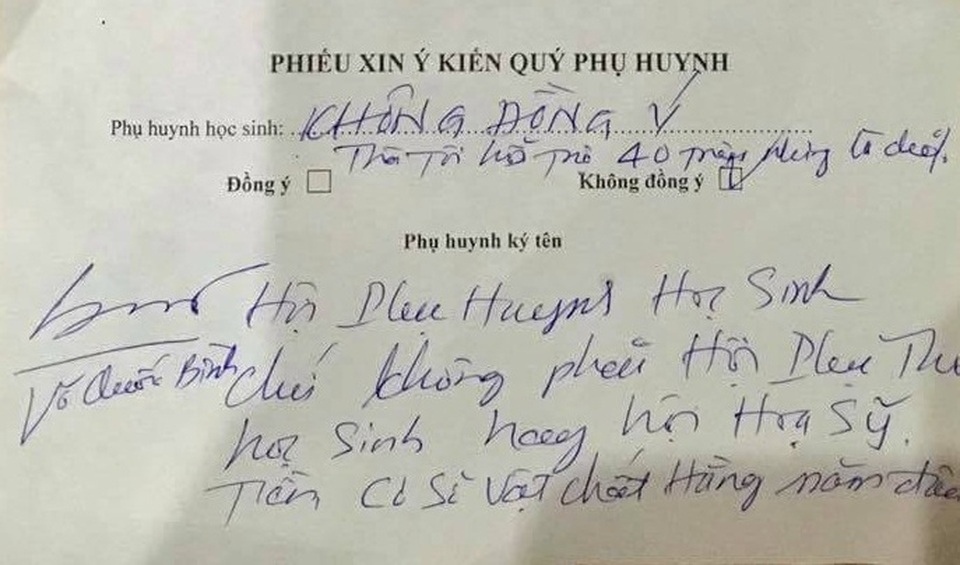 PHIẾU XIN Ý KIẾN QUÝ PHỤ HUYNH
Phụ huynh học sinh: KHÔNG ĐỒNG Ý
Tôi hỗ trợ 40
Đồng ý Không đồng ý
Phụ huynh ký tên
Hội Phụ Huynh Học Sinh
Võ Quốc Bình
chứ không phải Hội Phụ Thu
học Sinh hay hội Hoạ Sỹ.
Tiền Cơ Sở Vật chất Hằng năm đâu